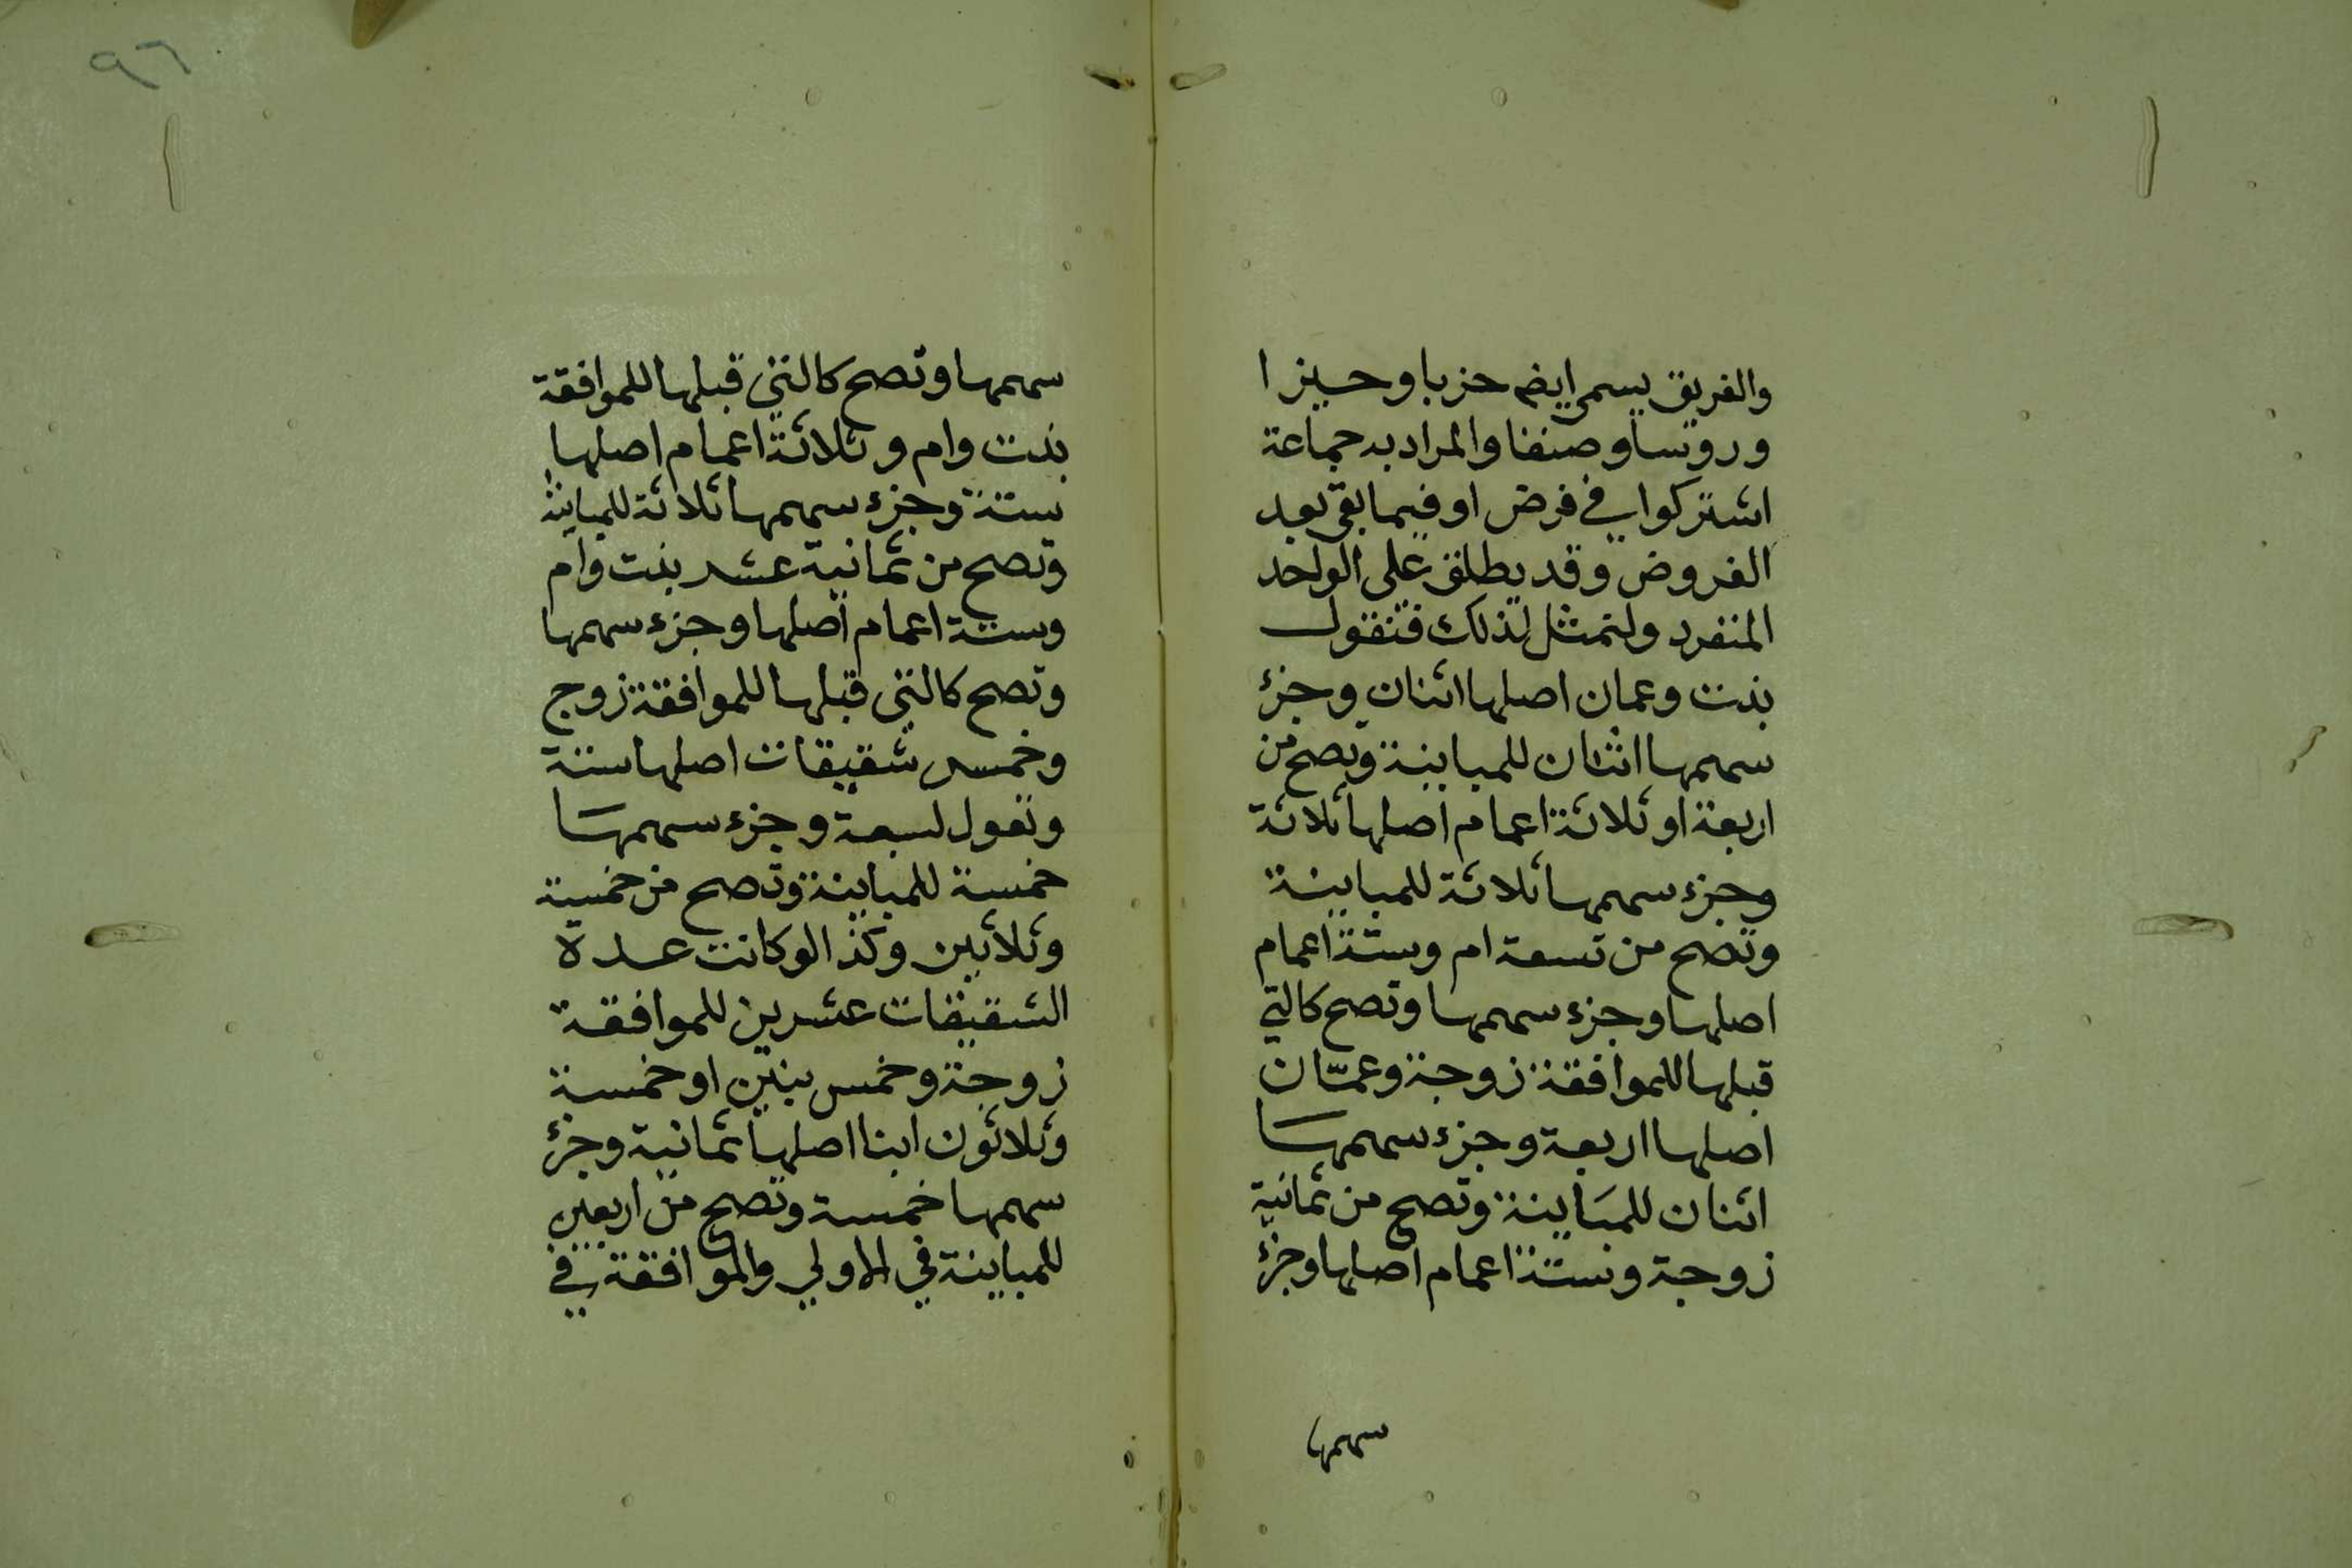 والفريق يسمى ايضا حزبا وحيزا
وروسا وصنفا والمراد به جماعة
اشتركوا في فرض او فيما بقي بعد
الفروض وقد يطلق على الواحد
المنفرد ولنمثل لذلك فنقول
بنت وعمان اصلها اثنان وجزء
سهمها اثنان للمباينة وتصح من
اربعة او ثلاثة اعمام اصلها ثلاثة
وجزء سهمها ثلاثة للمباينة
وتصح من تسعة ام وستة اعمام
اصلها وجزء سهمها وتصح كالتي
قبلها للموافقة زوجة وعمان
اصلها اربعة وجزء سهمها
اثنان للمباينة وتصح من ثمانية
زوجة وستة اعمام اصلها وجزء
سهمها
٩٦
سهمها وتصح كالتي قبلها للموافقة
بنت وام وثلاثة اعمام اصلها
ستة وجزء سهمها ثلاثة للمباينة
وتصح من ثمانية عشر بنت وام
وستة اعمام اصلها وجزء سهمها
وتصح كالتي قبلها للموافقة زوج
وخمس شقيقات اصلها ستة
وتعول لسبعة وجزء سهمها
خمسة للمباينة وتصح من خمسة
وثلاثين وكذا لو كانت عدة
الشقيقات عشرين للموافقة
زوجة وخمس بنين او خمسة
وثلاثون ابنا اصلها ثمانية وجزء
سهمها خمسة وتصح من اربعين
للمباينة في الاولي والموافقة في